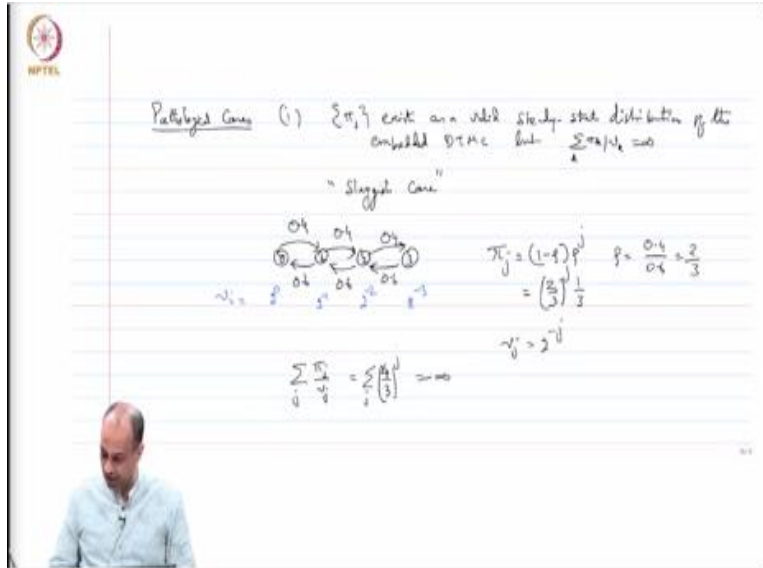 NPTEL
Pathological Cases (i) {π_i} exist as a valid steady-state distribution of the
embedded DTMC but Σ_k π_k/ν_k = ∞
"Sluggish Case"
0.4 0.4 0.4
0 1 2 3
0.6 0.6 0.6
ν_i = 2^0 2^-1 2^-2 2^-3
π_j = (1-ρ) ρ^j ρ = 0.4/0.6 = 2/3
= (2/3)^j 1/3
ν_j = 2^-j
Σ_j π_j/ν_j = Σ_j (4/3)^j = ∞